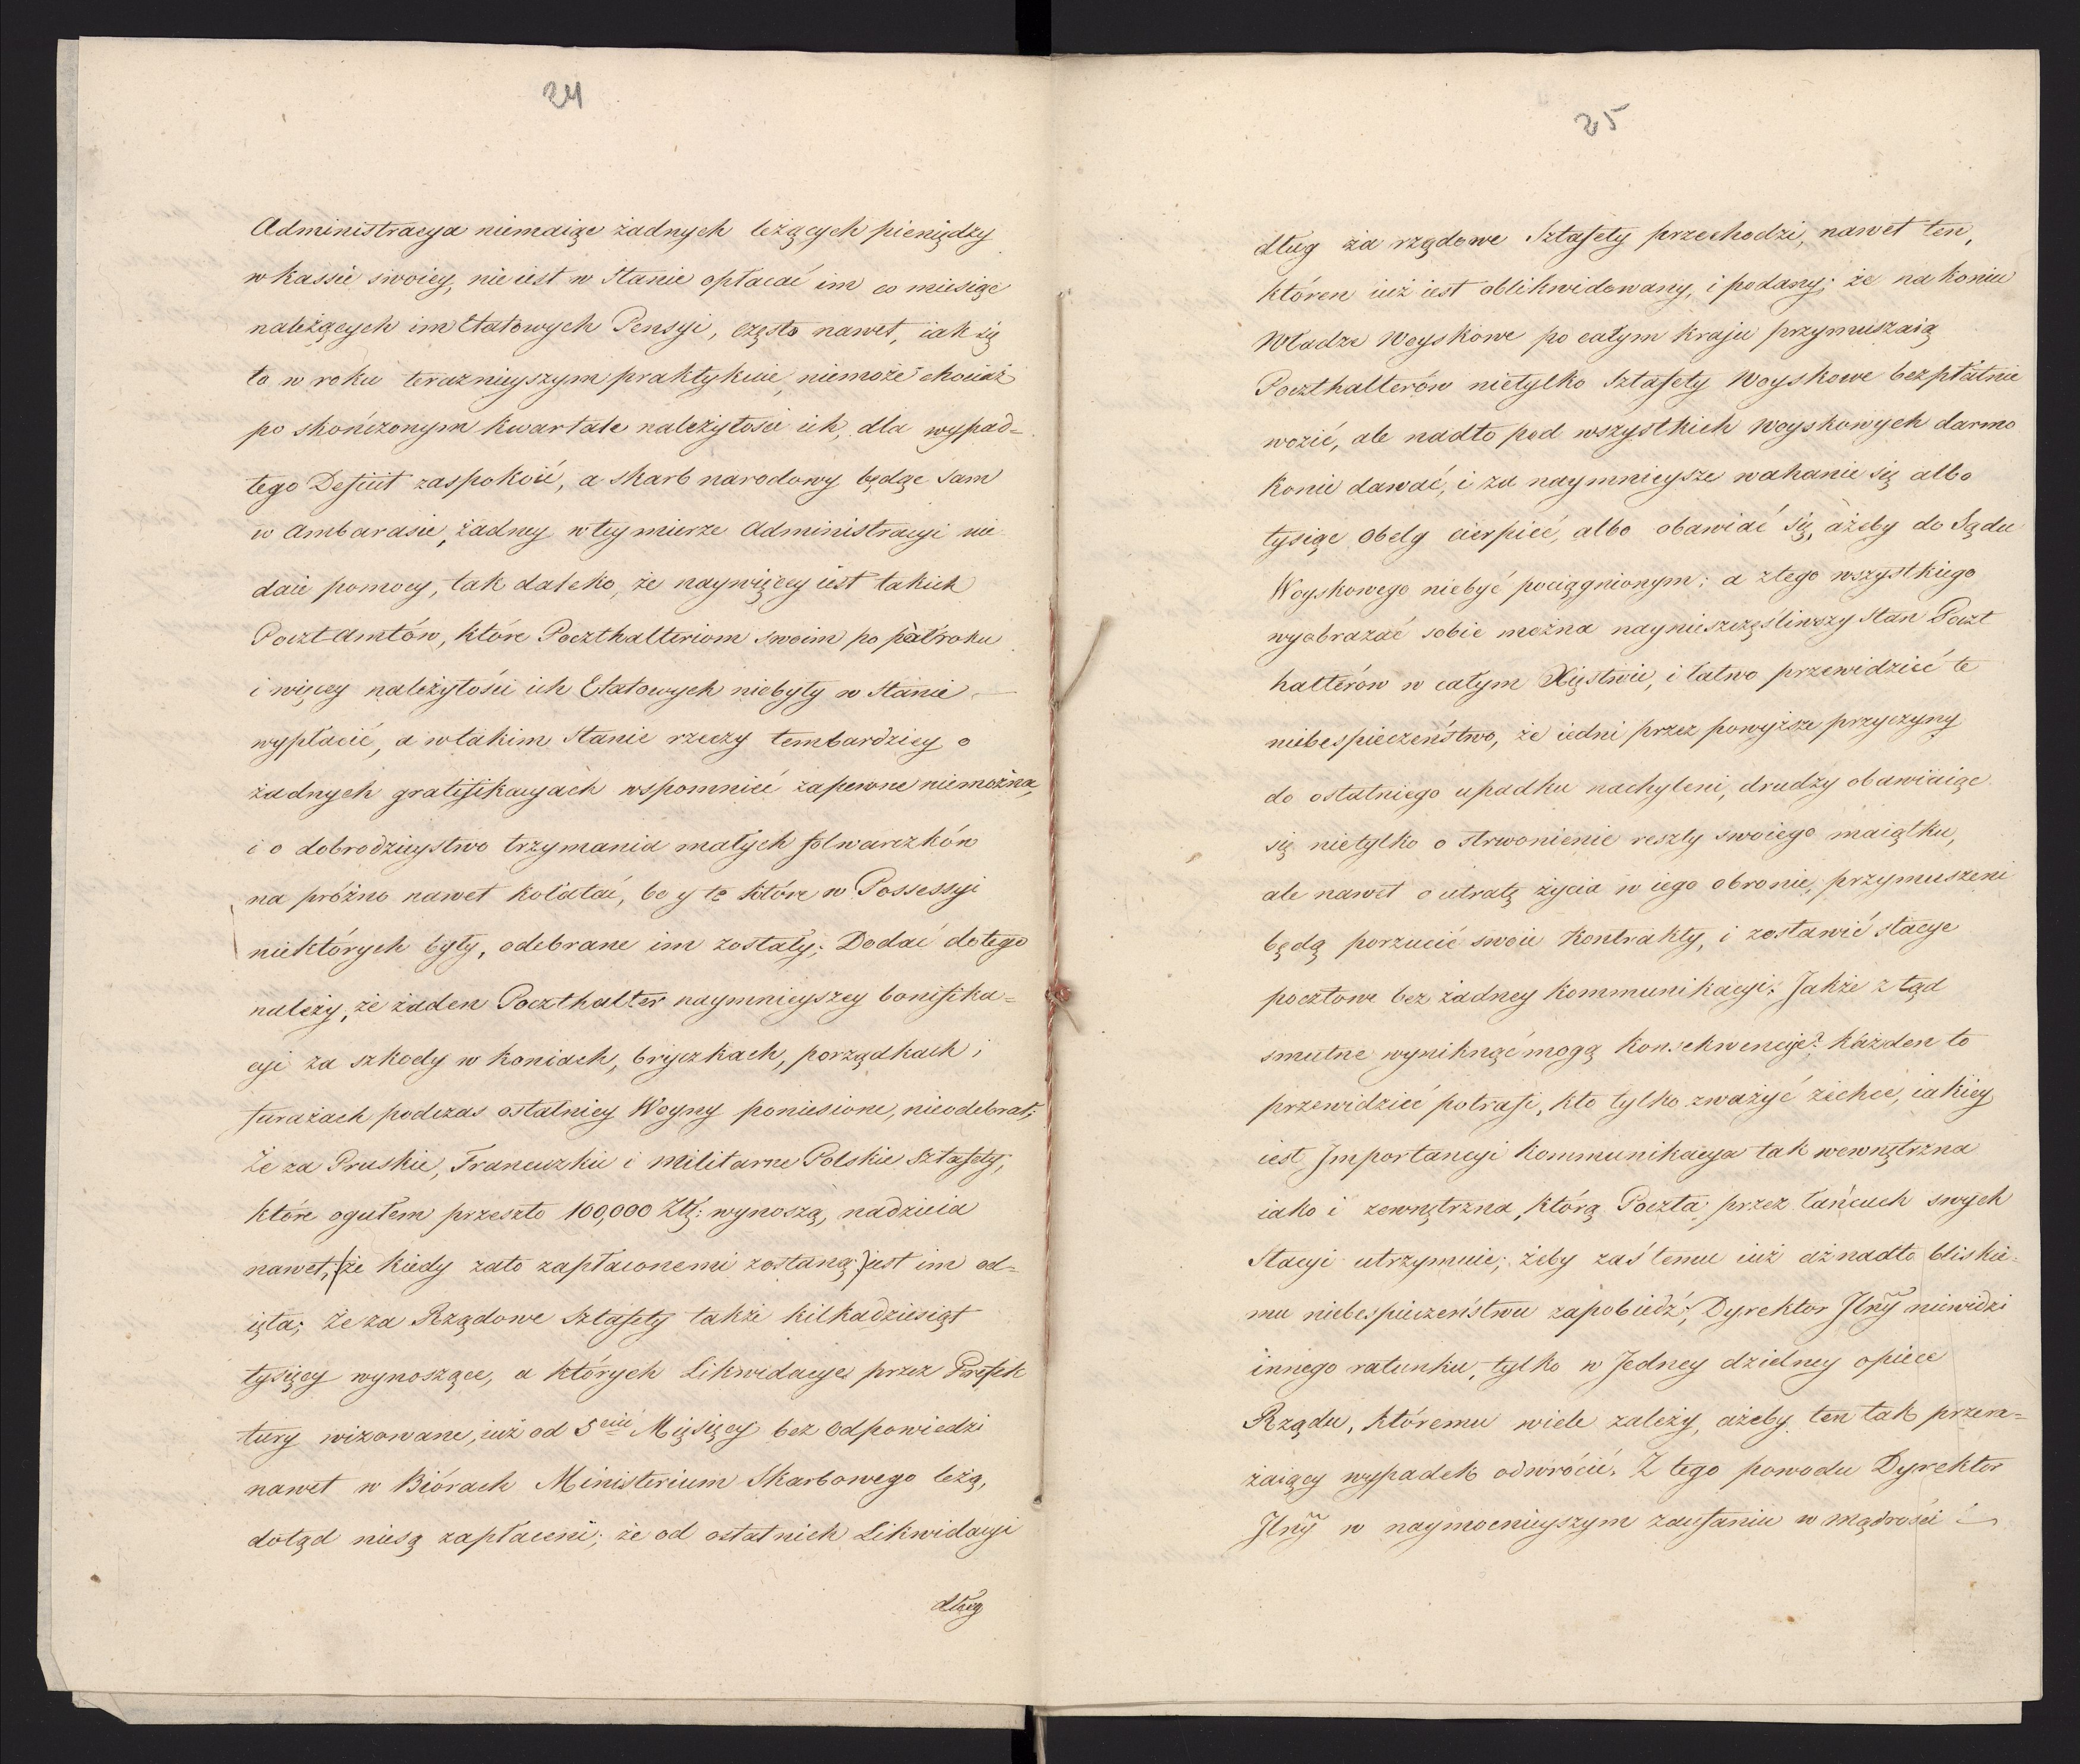 24
Administracya niemaiąc żadnych leżących pieniędzy
w kassie swoiey, nie iest w Stanie opłacać im co miesiąc
należących im Etatowych Pensyi, często nawet, iak się
to w roku teraznieyszym praktykuie, niemoże chociaż
po skończonym kwartale należytości ich, dla wypad=
tego Deficit zaspokoić, a skarb narodowy będąc sam
w Ambarasie, żadney w tey mierze Administracyi nie
daie pomocy, tak daleko, że naywięcey iest takich
Poczt Amtów, które Poczthalteriom swoim po pół roku
i więcey należytości ich Etatowych niebyły w Stanie
wypłacić, a w takim Stanie rzeczy tembardziey o
żadnych gratifikacyach wspomnieć zapewne niemożna,
i o dobrodzieystwo trzymania małych folwarczków
na próżno nawet kołatać, bo y te które w Possessyi
niektórych były, odebrane im zostały; Dodać do tego
należy, że żaden Poczthalter naymnieyszey bonifika=
cyi za szkody w koniach, bryczkach, porządkach i
furażach podczas ostatniey Woyny poniesione, nieodebrał;
Że za Pruskie, Francuzkie i Militarne Polskie Sztafety,
które ogułem przeszło 100,000 Złł: wynoszą, nadzieia
nawet, (że kiedy zato zapłaconemi zostaną) iest im od=
ięta; Że za Rządowe Sztafety także kilkadziesiąt
tysięcy wynoszące, a których Likwidacye przez Prefek
tury wizowane, iuż od 5ciu Mięsięcy bez odpowiedzi
nawet w Biórach Ministerium Skarbowego leżą,
dotąd niesą zapłaceni; że od ostatnich Likwidacyi
dług
25
dług za rządowe Sztafety przechodzi, nawet ten,
któren iuż iest oblikwidowany, i podany; że na koniec
Władze Woyskowe po całym kraju przymuszaią
Poczthalterów nietylko Sztafety Woyskowe bezpłatnie
wozić, ale nadto pod wszystkich Woyskowych darmo
konie dawać, i za naymnieysze wahanie się albo
tysiąc obelg cierpieć, albo obawiać się, ażeby do Sądu
Woyskowego niebyć pociągnionym; a ztego wszystkiego
wyobrazać sobie można naynieszczęśliwszy Stan Poczt
halterów w całym Xięstwie, i łatwo przewidzieć te
niebespieczeństwo, że iedni przez powyższe przyczyny
do ostatniego upadku nachyleni, drudzy obawiaiąc
się nietylko o strwonienie reszty swoiego maiątku,
ale nawet o utratę życia w iego obronie, przymuszeni
będą porzucić swoie Kontrakty, i zostawić stacye
pocztowe bez żadney kommunikacyi; Jakże z tąd
smutne wyniknąć mogą konsekwencye? każden to
przewidzieć potrafi, kto tylko zważyć zechce, iakiey
iest Importancyi kommunikacya tak wewnętrzna
iako i zewnętrzna, którą Poczta przez łańcuch swych
Stacyi utrzymuie; żeby zaś temu iuż aż nadto bliskie=
mu niebespieczeństwu zapobiedź; Dyrektor Jlny niewidzi
innego ratunku, tylko w Jedney dzielney opiece
Rządu, któremu wiele zależy, ażeby ten tak przera=
żaiący wypadek odwrócić. Z tego powodu Dyrektor
Jlny w naymocnieyszym zaufaniu w mądrości